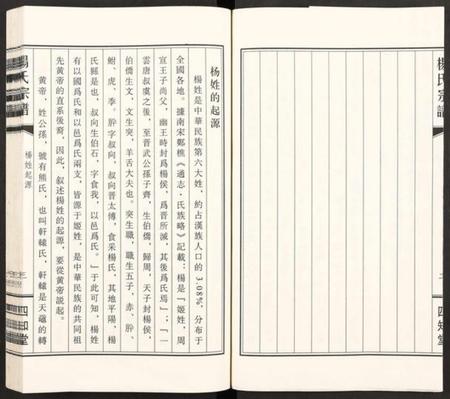 楊氏宗譜
杨姓的起源
楊姓是中華民族第六大姓，約占漢族人口的3.08%，分布于
全國各地。據南宋鄭樵《通志·氏族略》記載：楊是『姬姓，周
宣王子尚父，幽王時封爲楊侯，爲晋所滅，其後爲氏焉』；『一
雲唐叔虞之後，至晋武公孫子齊，生伯僑，歸周，天子封楊侯，
伯僑生文，文生突，羊舌大夫也。突生職，職生五子，赤、肸、
鮒、虎、季。肸字叔向，叔向晋太傅，食采楊氏，其地平陽，楊
氏縣是也，叔向生伯石，字食我，以邑爲氏。」于此可知，楊姓
有以國爲氏和以邑爲氏兩支，皆源于姬姓，是中華民族的共同祖
先黄帝的直系後裔，因此，叙述楊姓的起源，要從黄帝説起。
黄帝，姓公孫，號有熊氏，也叫軒轅氏，軒轅是天黿的轉
楊氏宗譜
楊姓起源
四知堂
四知堂